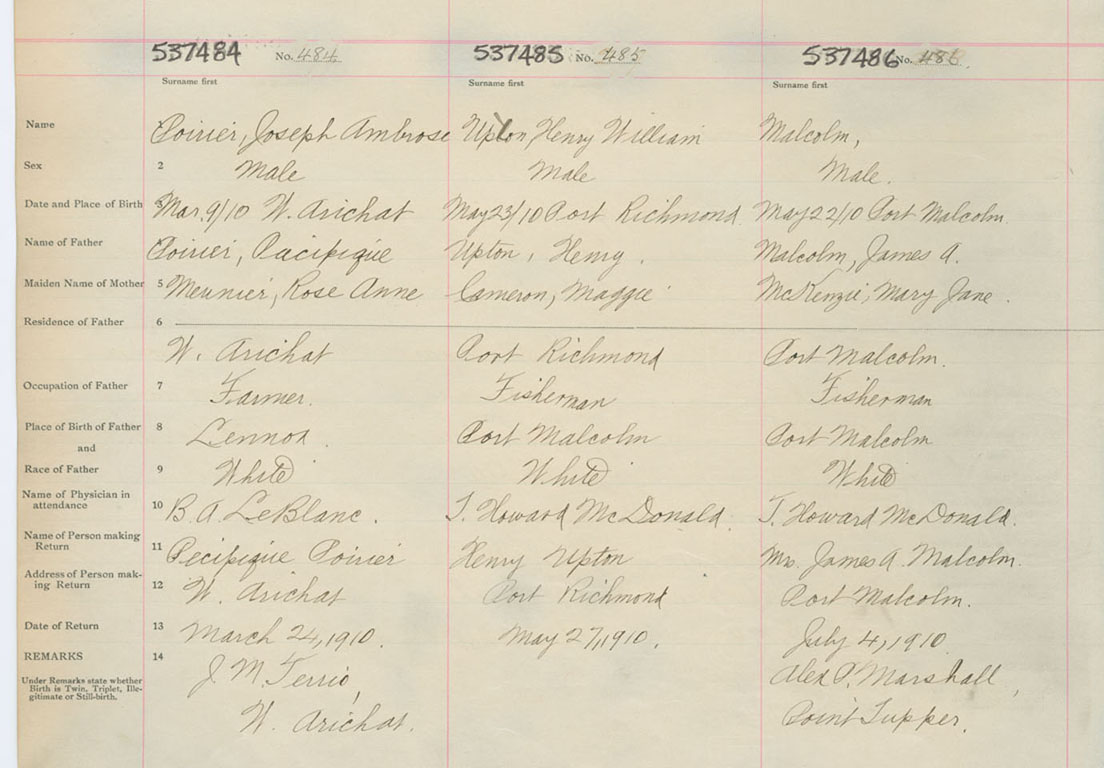 537484 No. 484 537485 No. 485 537486 No. 486
Surname first Surname first Surname first
Name 1 Poirier, Joseph Ambrose Upton, Henry William Malcolm,
Sex 2 Male Male Male.
Date and Place of Birth 3 Mar. 9/10 W. Arichat May 23/10 Port Richmond May 22/10 Port Malcolm
Name of Father 4 Poirier, Pacifique Upton, Henry. Malcolm, James A.
Maiden Name of Mother 5 Meunier, Rose Anne Cameron, Maggie McKenzie, Mary Jane.
Residence of Father 6
W. Arichat Port Richmond Port Malcolm.
Occupation of Father 7 Farmer. Fisherman Fisherman
Place of Birth of Father 8 Lennox. Port Malcolm Port Malcolm
and
Race of Father 9 White White White
Name of Physician in
attendance 10 B. A. LeBlanc. J. Howard McDonald. J. Howard McDonald.
Name of Person making
Return 11 Pecifique Poirier Henry Upton Mrs. James A. Malcolm.
Address of Person mak-
ing Return 12 W. Arichat Port Richmond Port Malcolm.
Date of Return 13 March 24, 1910. May 27, 1910. July 4, 1910
REMARKS 14 J. M. Terrio, Alex P. Marshall,
Under Remarks state whether
Birth is Twin, Triplet, Ille-
gitimate or Still-birth.
W. Arichat. Point Tupper.